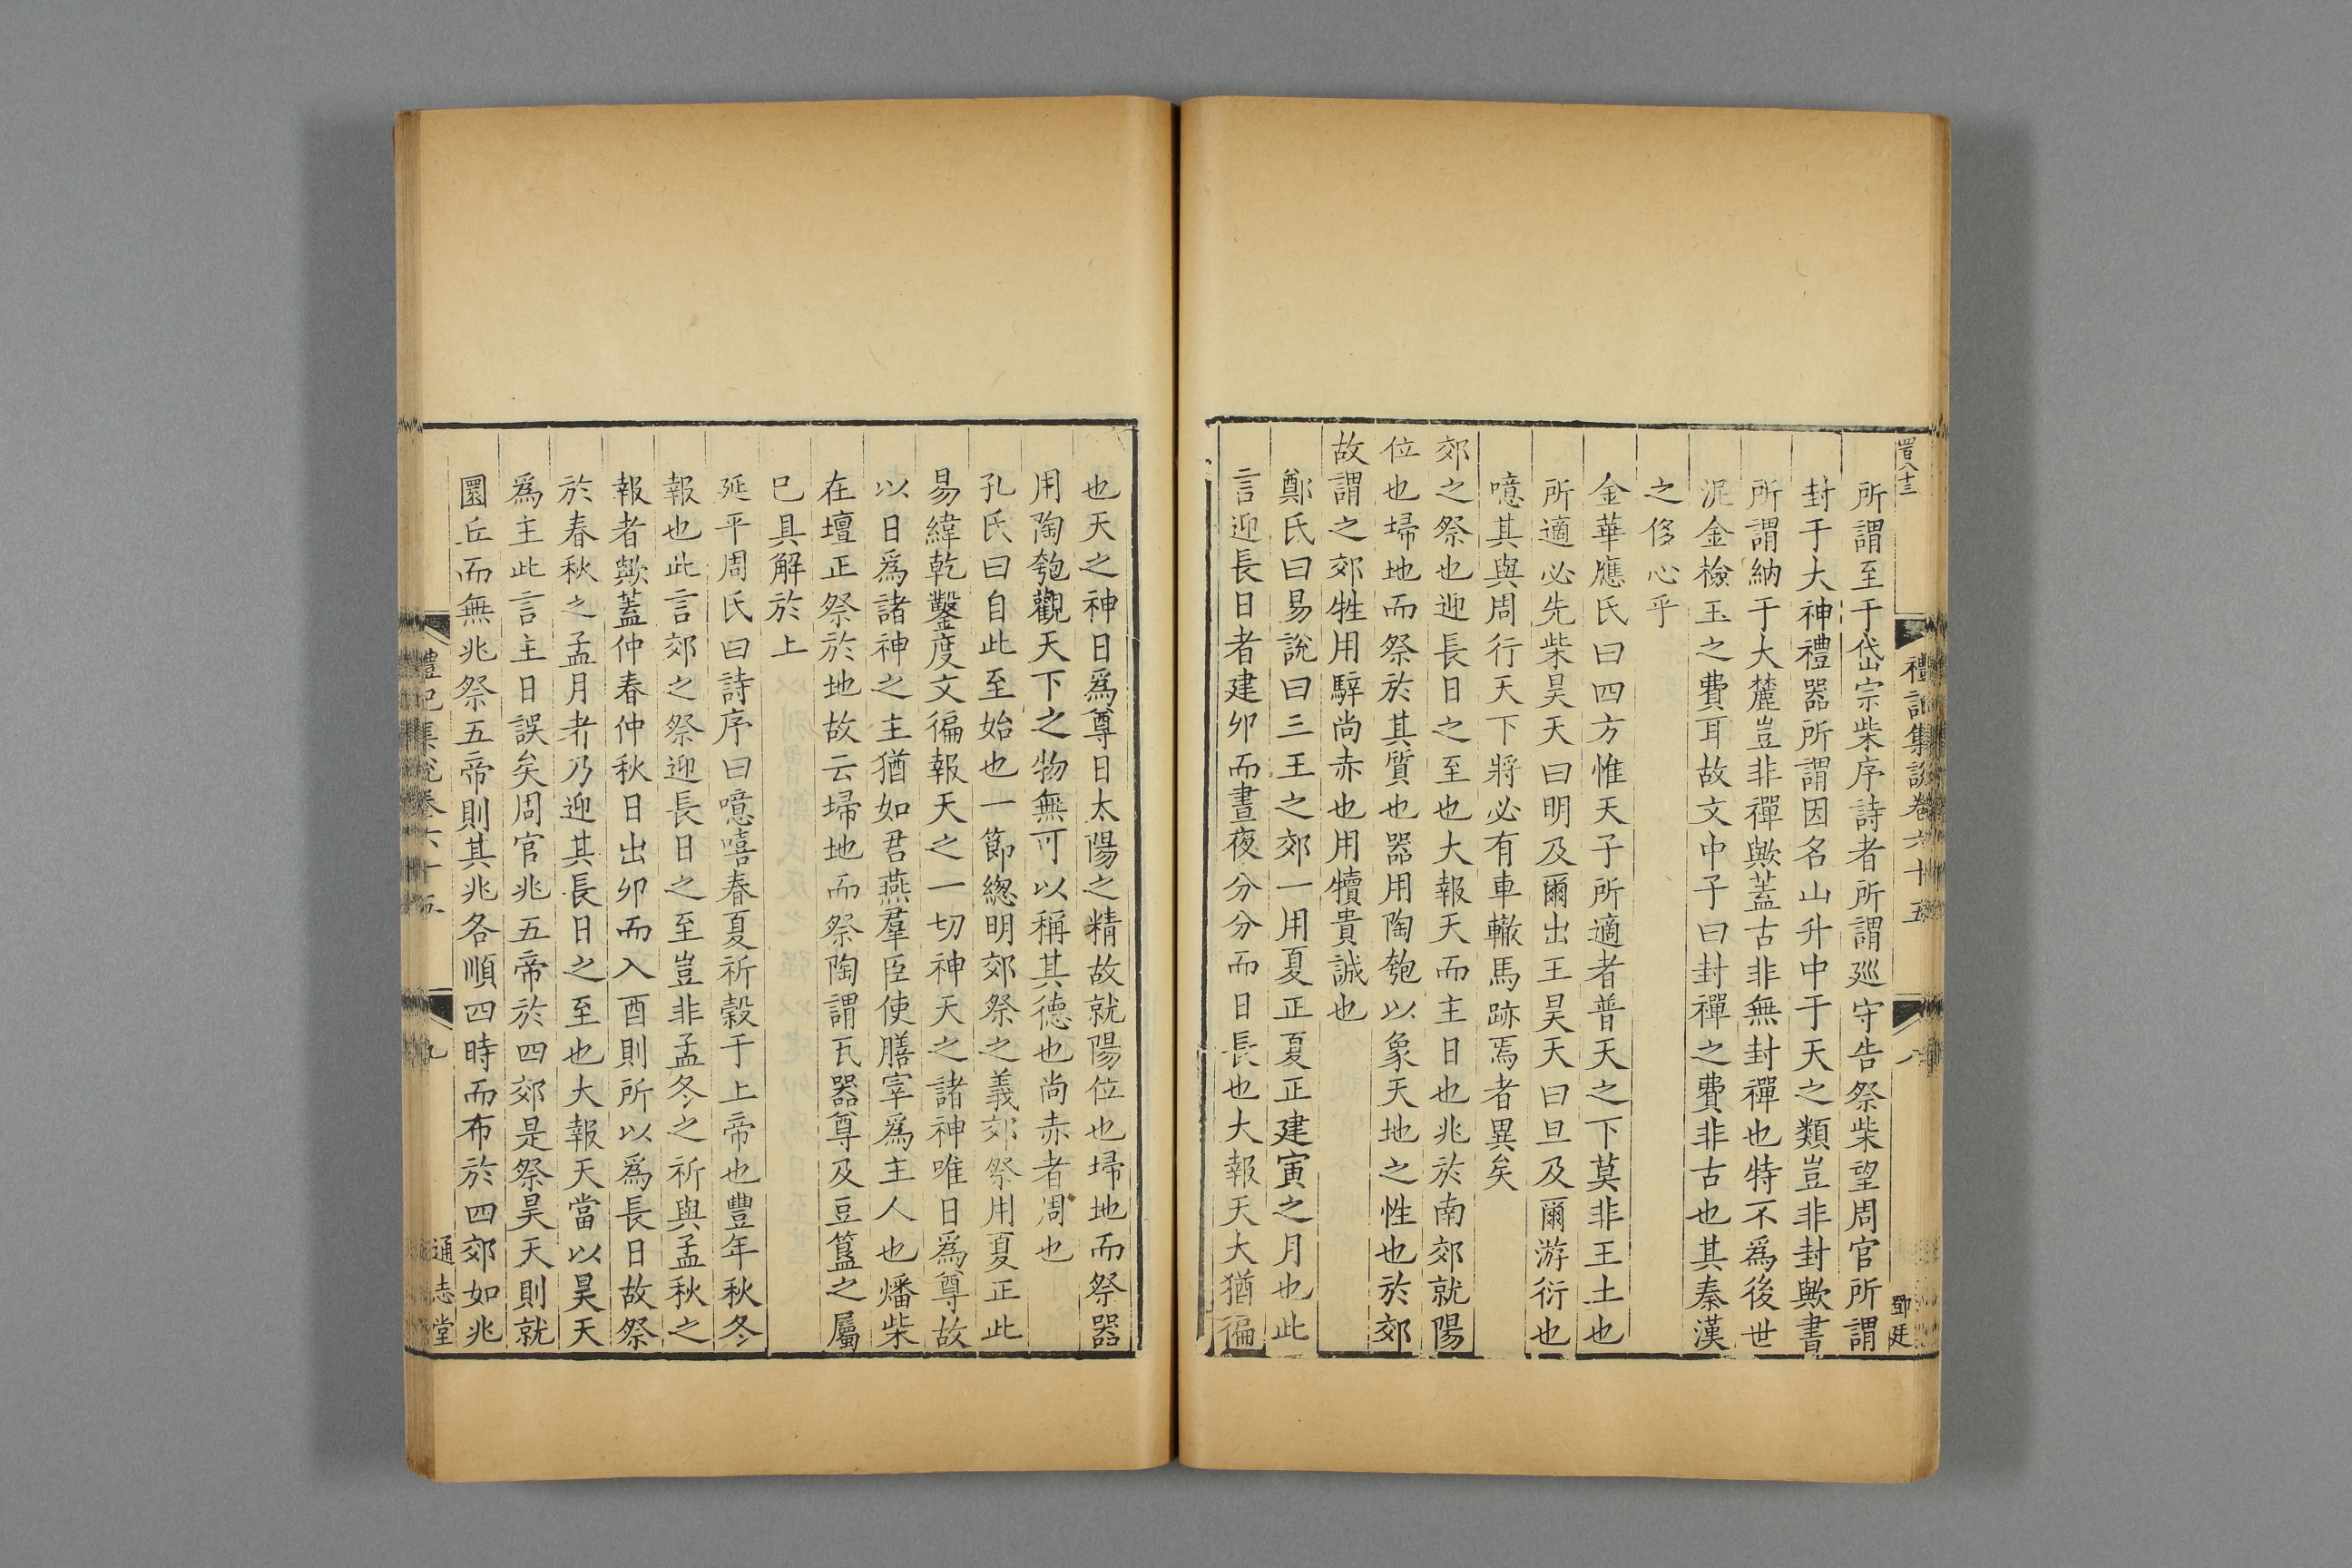 禮記集說卷六十五
八
鄧廷
所謂至于岱宗柴序詩者所謂廵守告祭柴望周官所謂
封于大神禮器所謂因名山升中于天之類豈非封歟書
所謂納于大麓豈非禪歟蓋古非無封禪也特不爲後世
泥金檢玉之費耳故文中子曰封禪之費非古也其秦漢
之侈心乎
金華應氏曰四方惟天子所適者普天之下莫非王土也
所適必先柴昊天曰明及爾出王昊天曰旦及爾游衍也
噫其與周行天下將必有車轍馬跡焉者異矣
郊之祭也迎長日之至也大報天而主日也兆於南郊就陽
位也埽地而祭於其質也器用陶匏以象天地之性也於郊
故謂之郊牲用騂尚赤也用犢貴誠也
鄭氏曰易說曰三王之郊一用夏正夏正建寅之月也此
言迎長日者建卯而晝夜分分而日長也大報天大猶徧
也天之神日爲尊日太陽之精故就陽位也埽地而祭器
用陶匏觀天下之物無可以稱其德也尚赤者周也
孔氏曰自此至始也一節總明郊祭之義郊祭用夏正此
易緯乾鑿度文徧報天之一切神天之諸神唯日爲尊故
以日爲諸神之主猶如君燕羣臣使膳宰爲主人也燔柴
在壇正祭於地故云埽地而祭陶謂瓦器尊及豆簋之屬
已具解於上
延平周氏曰詩序曰噫嘻春夏祈穀于上帝也豐年秋冬
報也此言郊之祭迎長日之至豈非孟冬之祈與孟秋之
報者歟蓋仲春仲秋日出卯而入酉則所以爲長日故祭
於春秋之孟月者乃迎其長日之至也大報天當以昊天
爲主此言主日誤矣周官兆五帝於四郊是祭昊天則就
圜丘而無兆祭五帝則其兆各順四時而布於四郊如兆
禮記集說卷六十五
九
通志堂